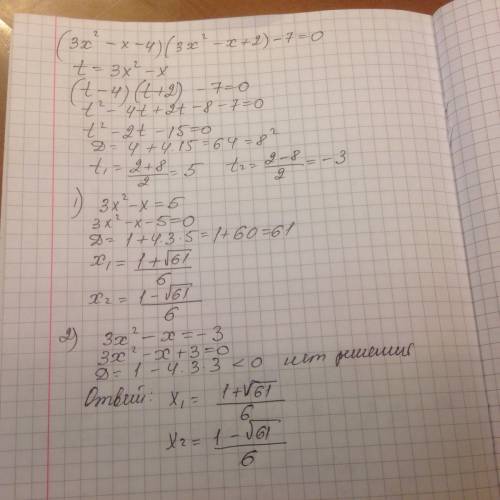 (3x² - x - 4)(3x² - x + 2) - 7 = 0
t = 3x² - x
(t - 4)(t + 2) - 7 = 0
t² - 4t + 2t - 8 - 7 = 0
t² - 2t - 15 = 0
D = 4 + 4·15 = 64 = 8²
t₁ = (2+8)/2 = 5 t₂ = (2-8)/2 = -3
1) 3x² - x = 5
3x² - x - 5 = 0
D = 1 + 4·3·5 = 1 + 60 = 61
x₁ = (1 + √61)/6
x₂ = (1 - √61)/6
2) 3x² - x = -3
3x² - x + 3 = 0
D = 1 - 4·3·3 < 0 нет решения
Ответ: x₁ = (1 + √61)/6
x₂ = (1 - √61)/6